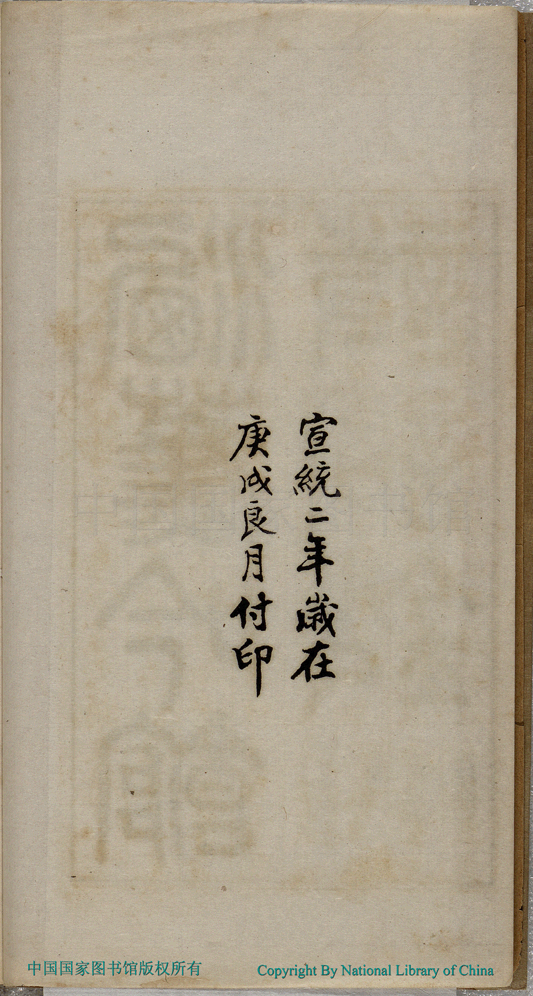 宣統二年歲在
庚戌良月付印
中国国家图书馆版权所有
Copyright By National Library of China